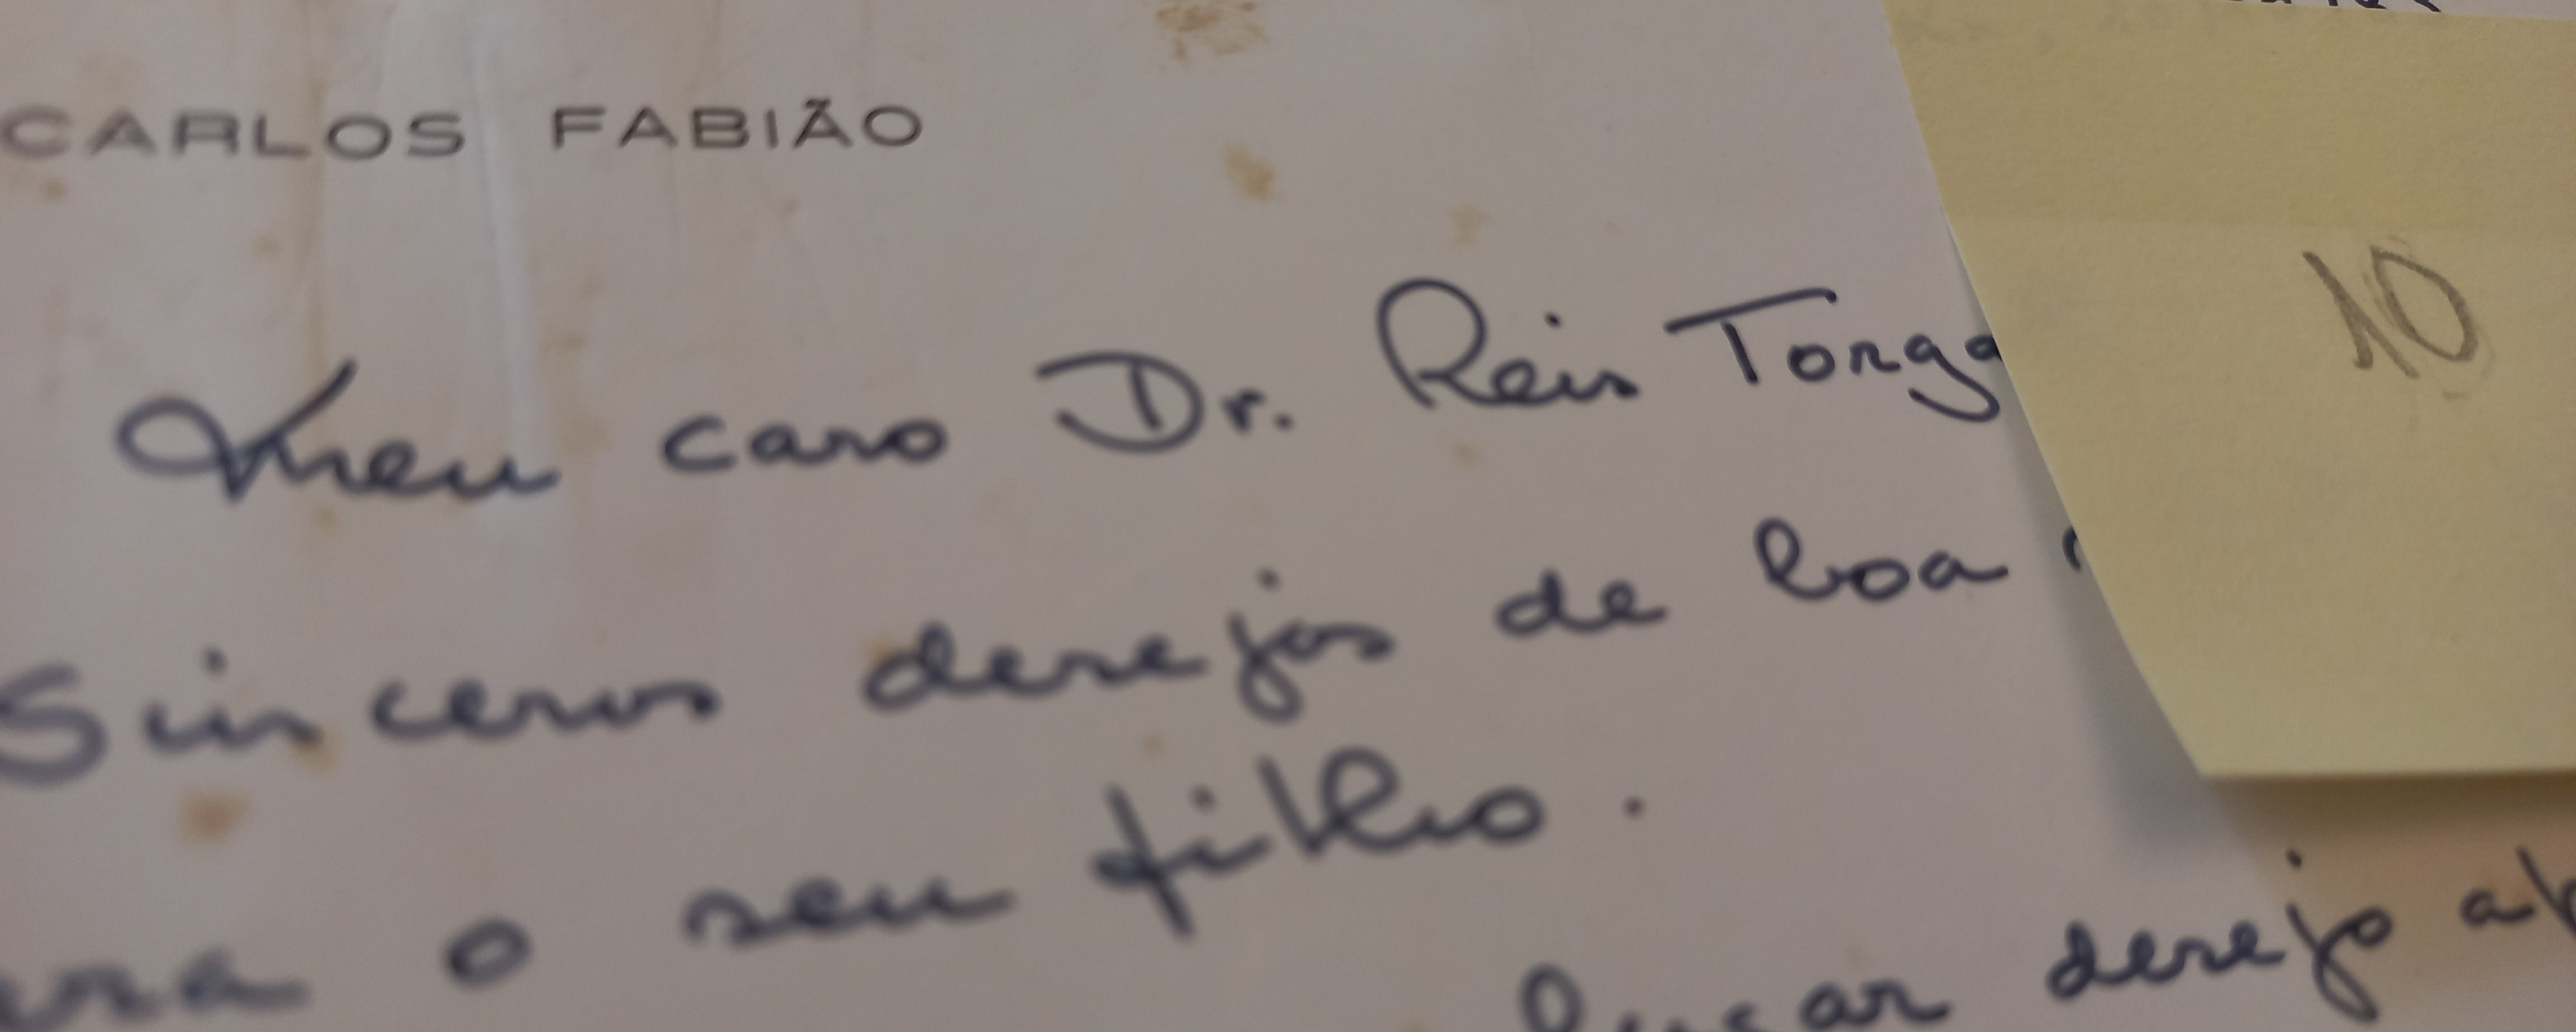 CARLOS FABIÃO
10
Meu caro Dr. Reis Torga
Sinceros desejos de boa
o seu filho.
lugar desejo